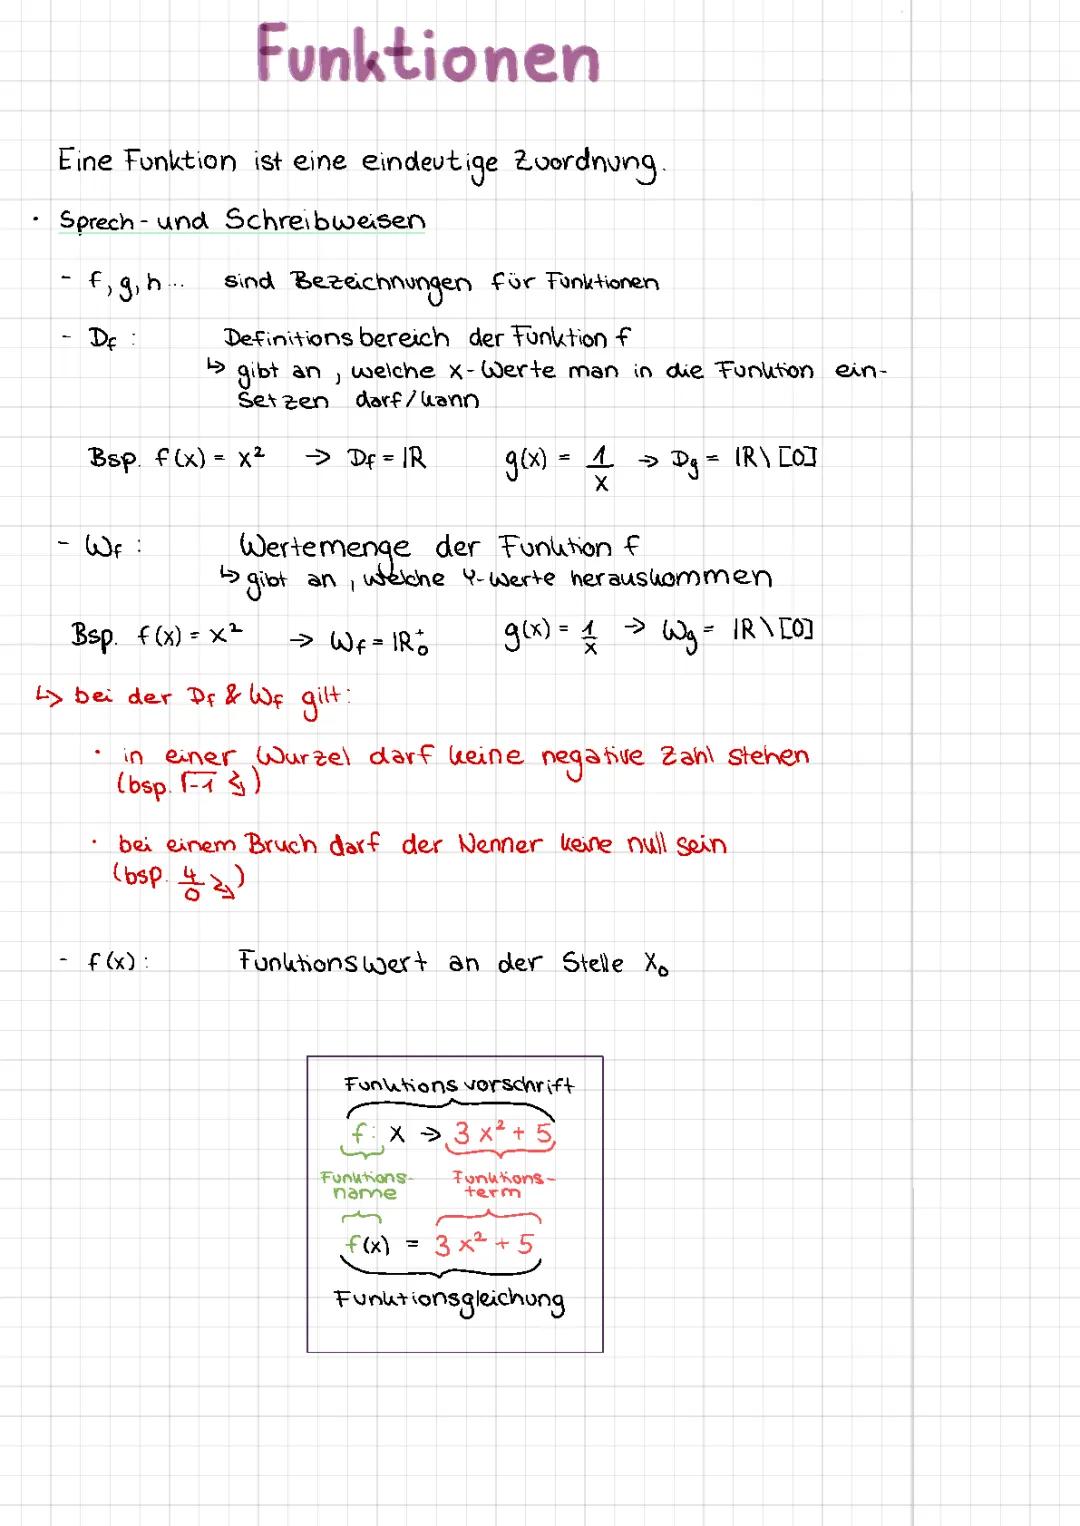 Funktionen
Eine Funktion ist eine eindeutige Zuordnung.
• Sprech- und Schreibweisen
- f, g, h ... sind Bezeichnungen für Funktionen
- Df : Definitionsbereich der Funktion f
↳ gibt an, welche x-Werte man in die Funktion ein-
setzen darf/kann
Bsp. f(x) = x² → Df = ℝ g(x) = 1/x → Dg = ℝ\[0]
- Wf : Wertemenge der Funktion f
↳ gibt an, welche Y-Werte herauskommen
Bsp. f(x) = x² → Wf = ℝ₀⁺ g(x) = 1/x → Wg = ℝ\[0]
↳ bei der Df & Wf gilt:
• in einer Wurzel darf keine negative Zahl stehen
(bsp. √-1 ↯)
• bei einem Bruch darf der Nenner keine null sein
(bsp. 4/0 ↯)
- f(x) : Funktionswert an der Stelle x₀
Funktionsvorschrift
f: x → 3x² + 5
Funktions- Funktions-
name term
f(x) = 3x² + 5
Funktionsgleichung